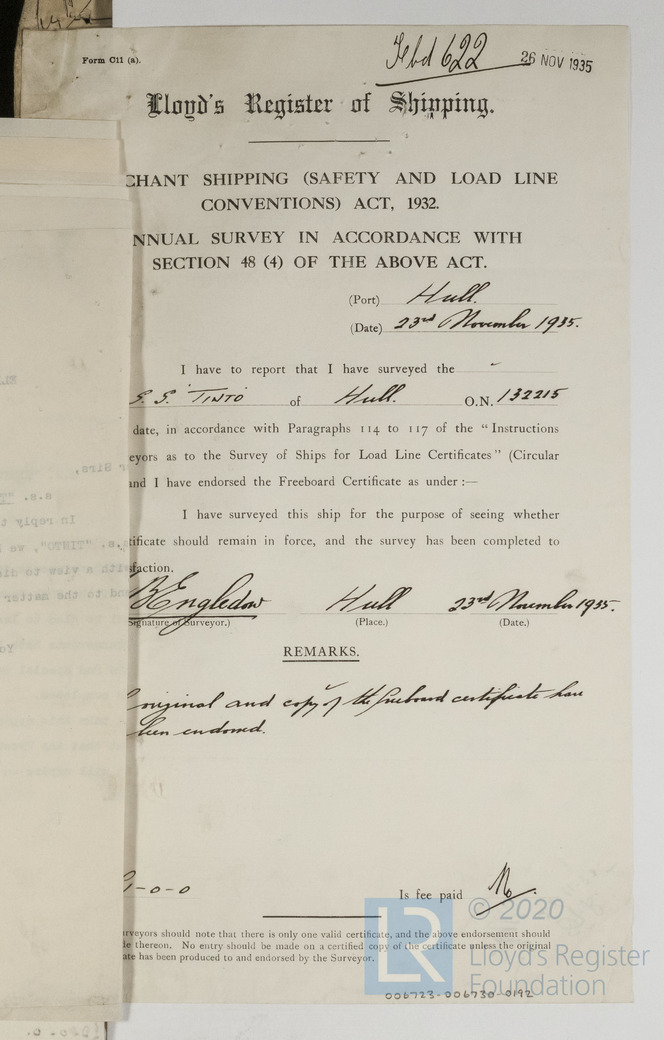 Form C11 (a).
Fbd 622
26 NOV 1935
Lloyd's Register of Shipping.
CHANT SHIPPING (SAFETY AND LOAD LINE
CONVENTIONS) ACT, 1932.
NNUAL SURVEY IN ACCORDANCE WITH
SECTION 48 (4) OF THE ABOVE ACT.
(Port) Hull.
(Date) 23rd November 1935.
I have to report that I have surveyed the
S.S. "TINTO of Hull. O.N. 132215
date, in accordance with Paragraphs 114 to 117 of the "Instructions
eyors as to the Survey of Ships for Load Line Certificates" (Circular
nd I have endorsed the Freeboard Certificate as under :—
I have surveyed this ship for the purpose of seeing whether
tificate should remain in force, and the survey has been completed to
sfaction.
R Engledow Hull 23rd November 1935.
Signature of Surveyor.) (Place.) (Date.)
REMARKS.
original and copy of the freeboard certificate have
been endorsed.
1-0-0
Is fee paid No.
urveyors should note that there is only one valid certificate, and the above endorsement should
de thereon. No entry should be made on a certified copy of the certificate unless the original
ate has been produced to and endorsed by the Surveyor.
© 2020
LR
Lloyd's Register
Foundation
006723-006730-0192